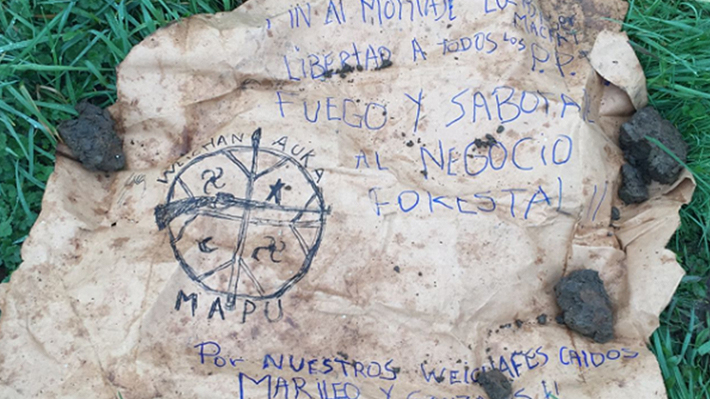 FIN AL MONTAJE
LIBERTAD A TODOS LOS P.P.
FUEGO Y SABOTAJ
AL NEGOCIO
FORESTAL !!
WEICHAN AUKA
MAPU
POR NUESTROS WEICHAFES CAIDOS
MARILEO Y